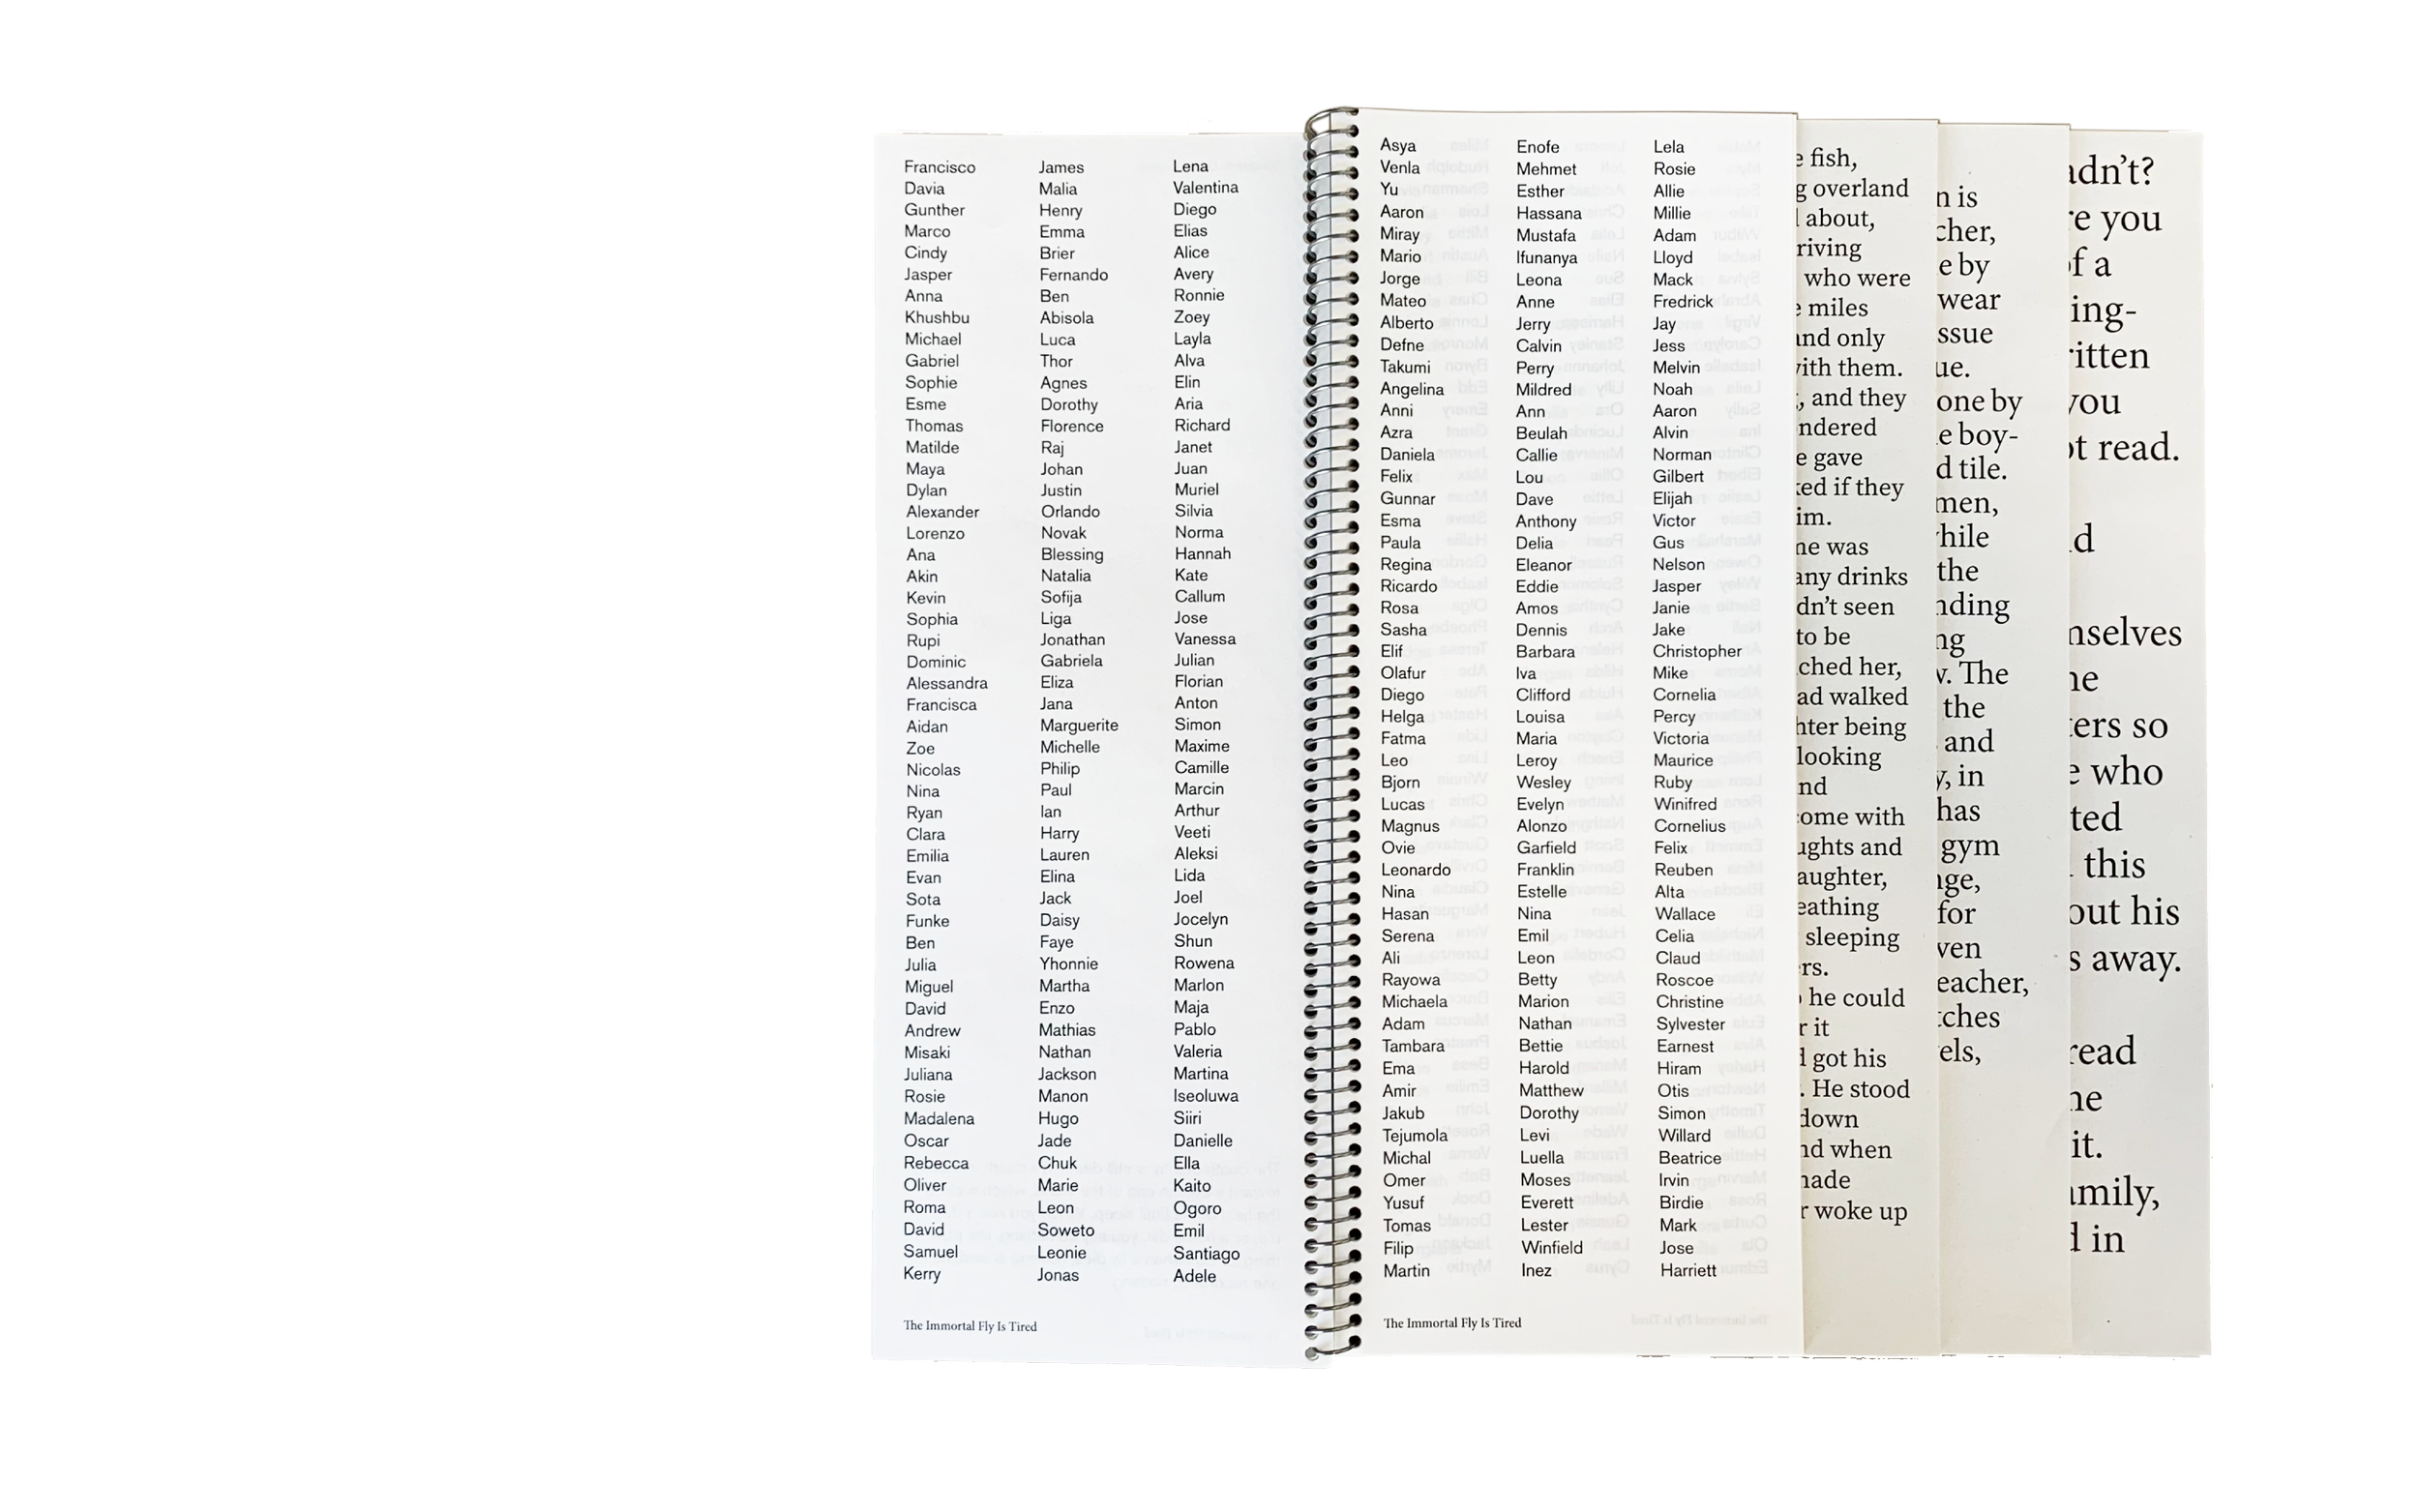 Francisco James Lena
Davia Malia Valentina
Gunther Henry Diego
Marco Emma Elias
Cindy Brier Alice
Jasper Fernando Avery
Anna Ben Ronnie
Khushbu Abisola Zoey
Michael Luca Layla
Gabriel Thor Alva
Sophie Agnes Elin
Esme Dorothy Aria
Thomas Florence Richard
Matilde Raj Janet
Maya Johan Juan
Dylan Justin Muriel
Alexander Orlando Silvia
Lorenzo Novak Norma
Ana Blessing Hannah
Akin Natalia Kate
Kevin Sofija Callum
Sophia Liga Jose
Rupi Jonathan Vanessa
Dominic Gabriela Julian
Alessandra Eliza Florian
Francisca Jana Anton
Aidan Marguerite Simon
Zoe Michelle Maxime
Nicolas Philip Camille
Nina Paul Marcin
Ryan Ian Arthur
Clara Harry Veeti
Emilia Lauren Aleksi
Evan Elina Lida
Sota Jack Joel
Funke Daisy Jocelyn
Ben Faye Shun
Julia Yhonnie Rowena
Miguel Martha Marlon
David Enzo Maja
Andrew Mathias Pablo
Misaki Nathan Valeria
Juliana Jackson Martina
Rosie Manon Iseoluwa
Madalena Hugo Siiri
Oscar Jade Danielle
Rebecca Chuk Ella
Oliver Marie Kaito
Roma Leon Ogoro
David Soweto Emil
Samuel Leonie Santiago
Kerry Jonas Adele
The Immortal Fly Is Tired
Asya Enofe Lela
Venla Mehmet Rosie
Yu Esther Allie
Aaron Hassana Millie
Miray Mustafa Adam
Mario Ifunanya Lloyd
Jorge Leona Mack
Mateo Anne Fredrick
Alberto Jerry Jay
Defne Calvin Jess
Takumi Perry Melvin
Angelina Mildred Noah
Anni Ann Aaron
Azra Beulah Alvin
Daniela Callie Norman
Felix Lou Gilbert
Gunnar Dave Elijah
Esma Anthony Victor
Paula Delia Gus
Regina Eleanor Nelson
Ricardo Eddie Jasper
Rosa Amos Janie
Sasha Dennis Jake
Elif Barbara Christopher
Olafur Iva Mike
Diego Clifford Cornelia
Helga Louisa Percy
Fatma Maria Victoria
Leo Leroy Maurice
Bjorn Wesley Ruby
Lucas Evelyn Winifred
Magnus Alonzo Cornelius
Ovie Garfield Felix
Leonardo Franklin Reuben
Nina Estelle Alta
Hasan Nina Wallace
Serena Emil Celia
Ali Leon Claud
Rayowa Betty Roscoe
Michaela Marion Christine
Adam Nathan Sylvester
Tambara Bettie Earnest
Ema Harold Hiram
Amir Matthew Otis
Jakub Dorothy Simon
Tejumola Levi Willard
Michal Luella Beatrice
Omer Moses Irvin
Yusuf Everett Birdie
Tomas Lester Mark
Filip Winfield Jose
Martin Inez Harriett
The Immortal Fly Is Tired
e fish,
g overland
about,
riving
who were
e miles
and only
with them.
, and they
ndered
e gave
ked if they
im.
ne was
any drinks
dn't seen
to be
ched her,
ad walked
hter being
looking
nd
come with
ughts and
aughter,
eathing
sleeping
ers.
he could
r it
d got his
. He stood
down
nd when
made
r woke up
n is
cher,
e by
wear
ssue
ue.
one by
e boy-
d tile.
men,
while
the
nding
ng
w. The
the
and
y, in
has
gym
nge,
for
ven
eacher,
tches
els,
adn't?
re you
of a
ing-
ritten
you
ot read.
d
mselves
he
ters so
e who
ted
this
out his
s away.
read
he
it.
amily,
d in